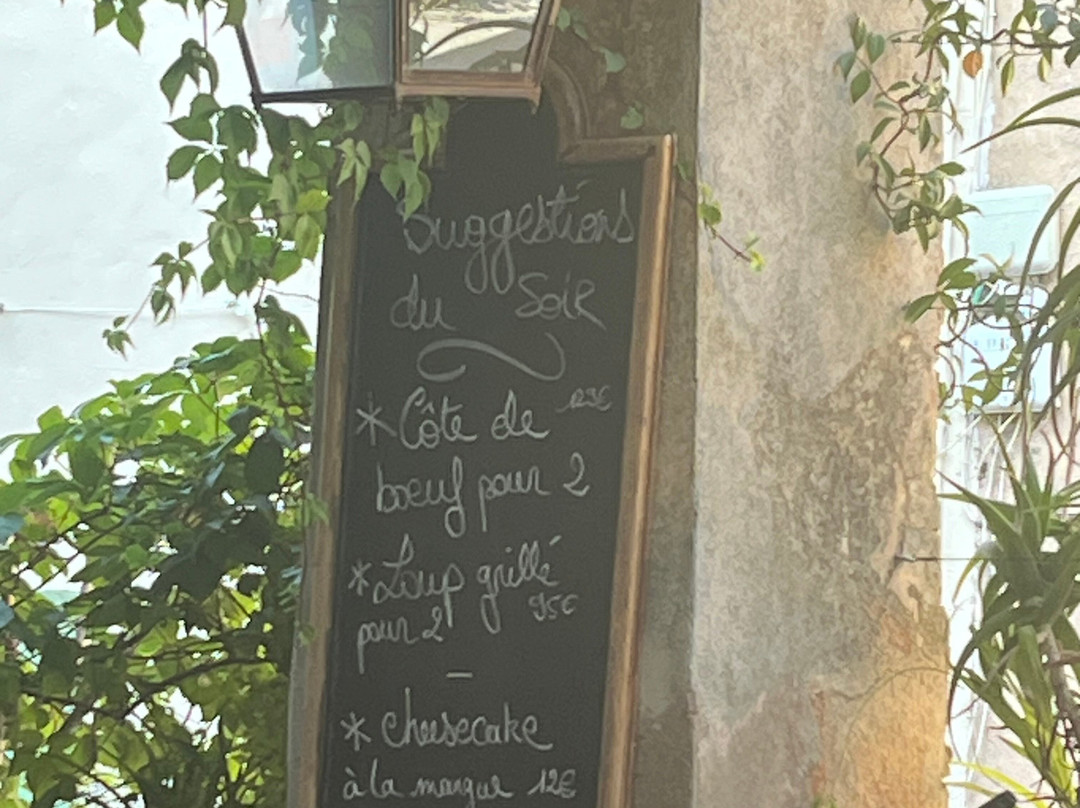 Suggestions
du Soir
* Côte de
boeuf pour 2
* Loup grillé
pour 2 95€
* cheesecake
à la mangue 12€